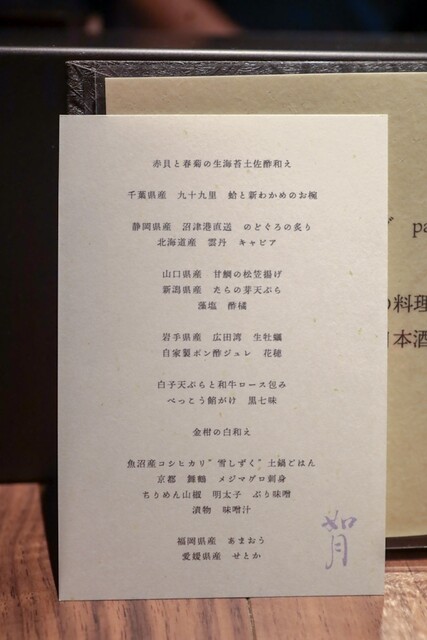 赤貝と春菊の生海苔土佐酢和え
千葉県産　九十九里　蛤と新わかめのお椀
静岡県産　沼津港直送　のどぐろの炙り
北海道産　雲丹　キャビア
山口県産　甘鯛の松笠揚げ
新潟県産　たらの芽天ぷら
藻塩　酢橘
岩手県産　広田湾　生牡蠣
自家製ポン酢ジュレ　花穂
白子天ぷらと和牛ロース包み
べっこう餡がけ　黒七味
金柑の白和え
魚沼産コシヒカリ”雪しずく”土鍋ごはん
京都　舞鶴　メジマグロ刺身
ちりめん山椒　明太子　ぶり味噌
漬物　味噌汁
福岡県産　あまおう
愛媛県産　せとか
如月
pa
の料理
日本酒